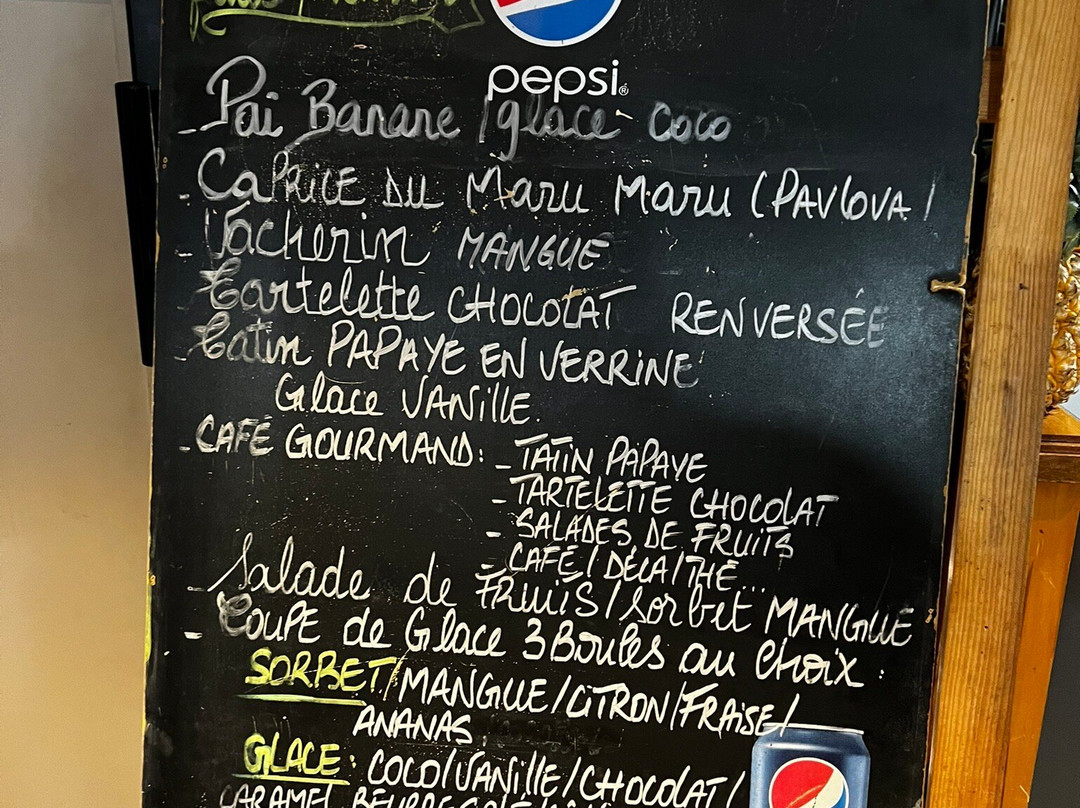 pepsi®
- Pai Banane / glace coco
- CAPRICE DU Maru Maru (PAVLOVA)
- Vacherin MANGUE
- Tartelette CHOCOLAT RENVERSÉE
- Tatin PAPAYE EN VERRINE
Glace VANILLE.
- CAFÉ GOURMAND: - TATIN PAPAYE
- TARTELETTE CHOCOLAT
- SALADES DE FRUITS
- CAFÉ / DÉCA / THÉ...
- Salade de FRUITS / sorbet MANGUE
- COUPE de Glace 3 Boules au Choix :
SORBET / MANGUE / CITRON / FRAISE /
ANANAS.
GLACE : COCO / VANILLE / CHOCOLAT /
CARAMEL BEURRE SALÉ